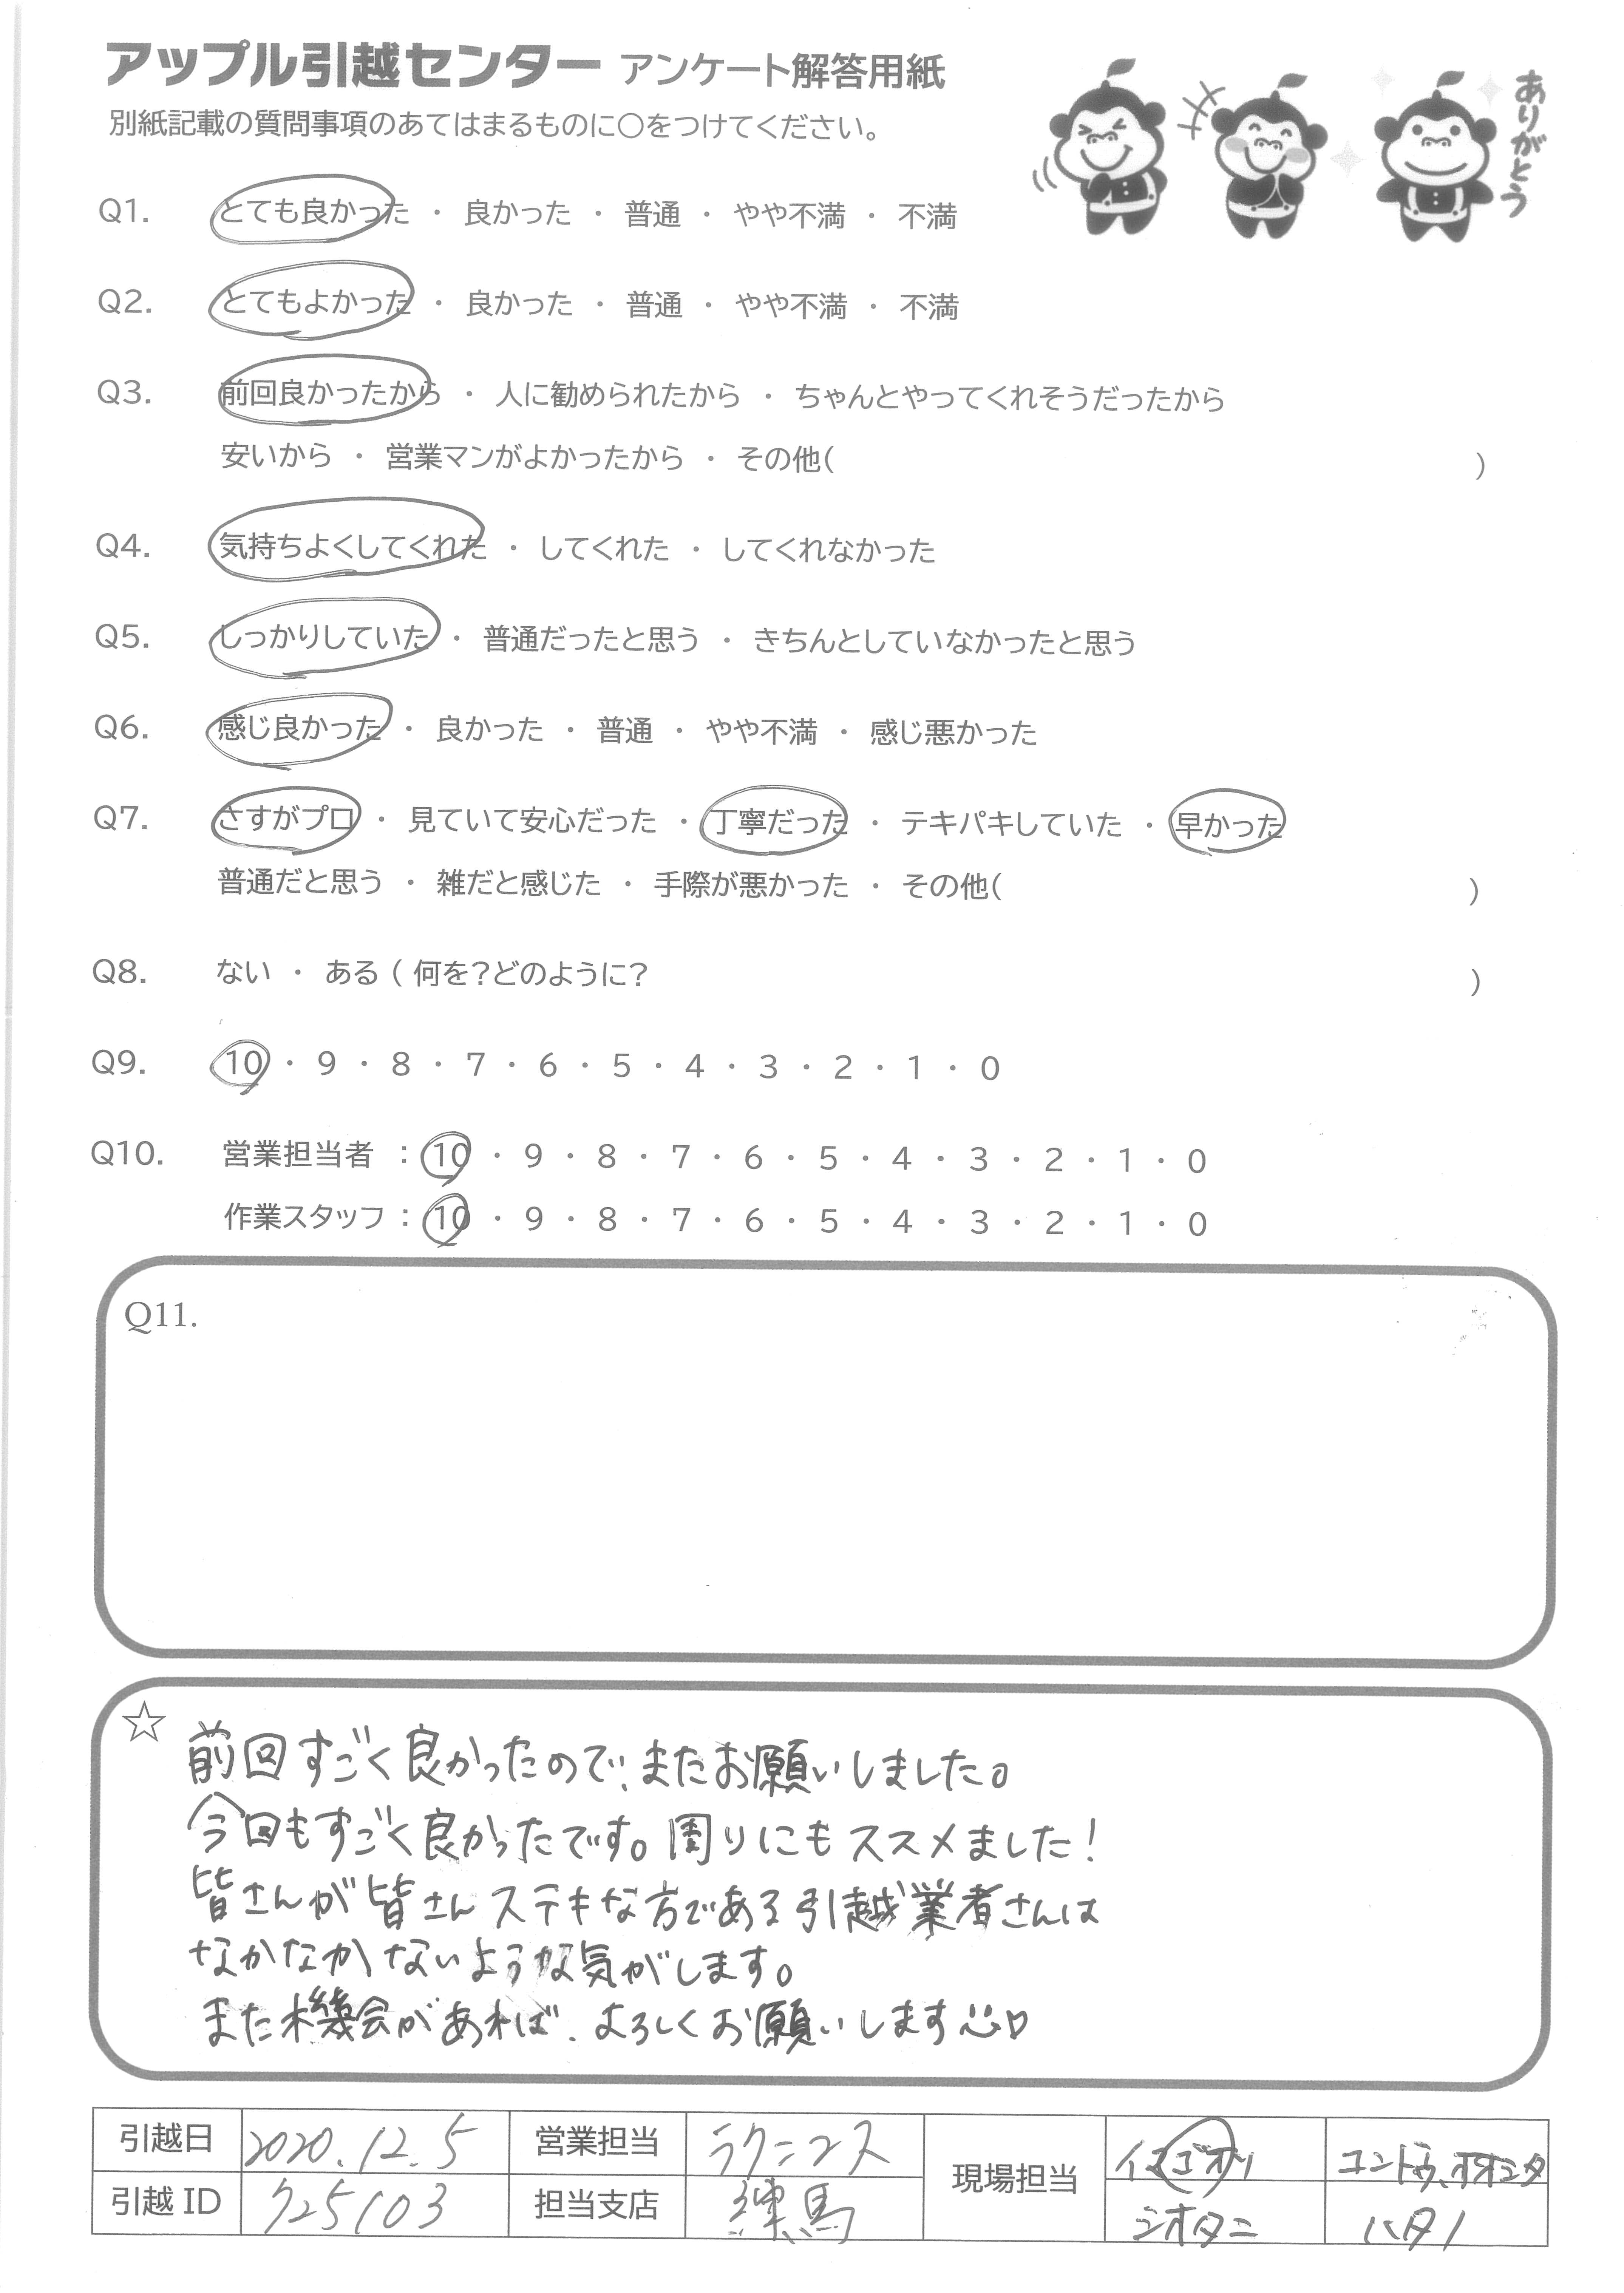 アップル引越センター アンケート解答用紙
ありがとう
別紙記載の質問事項のあてはまるものに○をつけてください。
Q1. とても良かった ・ 良かった ・ 普通 ・ やや不満 ・ 不満
Q2. とてもよかった ・ 良かった ・ 普通 ・ やや不満 ・ 不満
Q3. 前回良かったから ・ 人に勧められたから ・ ちゃんとやってくれそうだったから
安いから ・ 営業マンがよかったから ・ その他( )
Q4. 気持ちよくしてくれた ・ してくれた ・ してくれなかった
Q5. しっかりしていた ・ 普通だったと思う ・ きちんとしていなかったと思う
Q6. 感じ良かった ・ 良かった ・ 普通 ・ やや不満 ・ 感じ悪かった
Q7. さすがプロ ・ 見ていて安心だった ・ 丁寧だった ・ テキパキしていた ・ 早かった
普通だと思う ・ 雑だと感じた ・ 手際が悪かった ・ その他( )
Q8. ない ・ ある ( 何を?どのように? )
Q9. 10 ・ 9 ・ 8 ・ 7 ・ 6 ・ 5 ・ 4 ・ 3 ・ 2 ・ 1 ・ 0
Q10. 営業担当者 : 10 ・ 9 ・ 8 ・ 7 ・ 6 ・ 5 ・ 4 ・ 3 ・ 2 ・ 1 ・ 0
作業スタッフ : 10 ・ 9 ・ 8 ・ 7 ・ 6 ・ 5 ・ 4 ・ 3 ・ 2 ・ 1 ・ 0
Q11.
☆ 前回すごく良かったので、またお願いしました。
今回もすごく良かったです。周りにもススメました!
皆さんが皆さんステキな方である引越業者さんは
なかなかないような気がします。
また機会があれば、よろしくお願いします
引越日 2020.12.5 営業担当 現場担当 コントウ、オオシタ
引越ID 725103 担当支店 練馬 シオタニ ハタノ